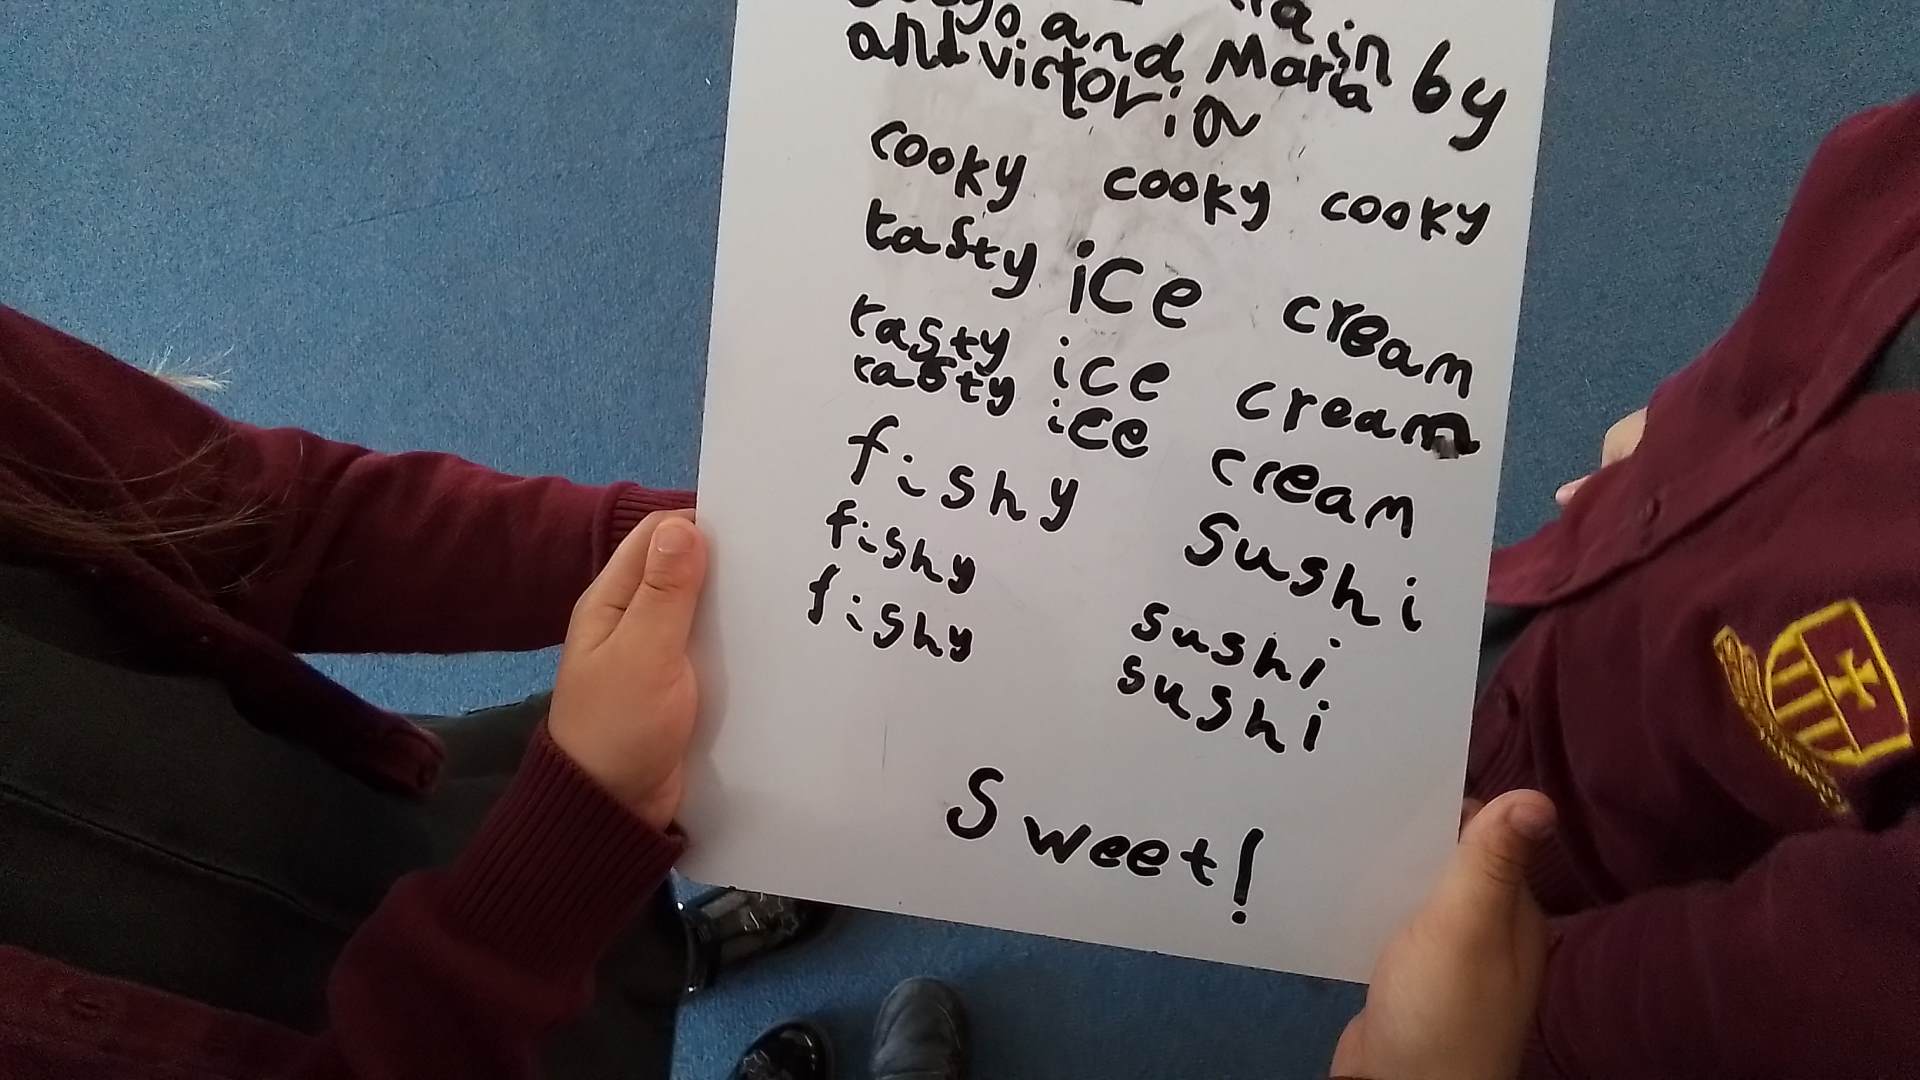 in by
and Maria
and victoria
cooky cooky cooky
tasty ice cream
tasty ice cream
tasty ice cream
fishy sushi
fishy sushi
fishy sushi
Sweet!